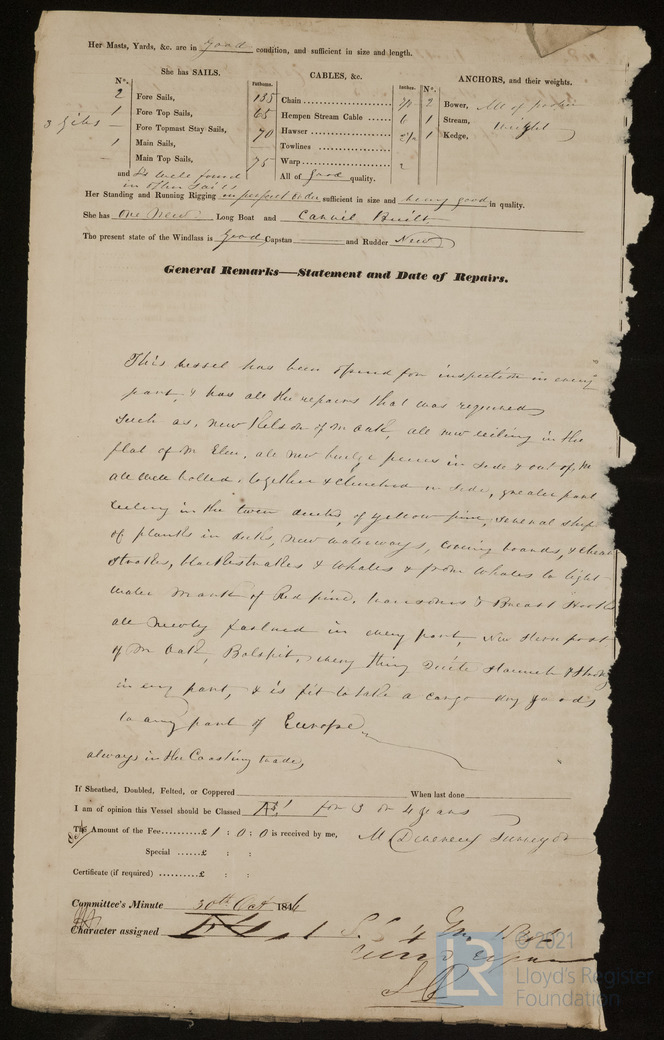 Her Masts, Yards, &c. are in good condition, and sufficient in size and length.
She has SAILS.
CABLES, &c.
ANCHORS, and their weights.
No.
Fathoms.
Inches.
No.
2 Fore Sails,
1 Fore Top Sails,
3 Gibs – Fore Topmast Stay Sails,
1 Main Sails,
Main Top Sails,
and is well found
in other Sails
Chain 135
Hempen Stream Cable 65 6
Hawser 70
Towlines
Warp 75 2
All of good quality.
2 Bower, All of proper
1 Stream, weight
1 Kedge,
Her Standing and Running Rigging in perfect order sufficient in size and being good in quality.
She has one New Long Boat and Carvil Built
The present state of the Windlass is Good Capstan and Rudder New
General Remarks—Statement and Date of Repairs.
This vessel has been opened for inspection in every
part, & has all the repairs that was required
such as, new Kelson of M Oak, all new ceiling in the
flat of M Elm, all new bulge pieces in side & out of M
all well bolted, together & clenched in side, greater part
ceiling in the twen decks, of yellow pine, several
of planks in decks, new waterways, covering boards, &
Strakes, blackstrakes & Whales & from Whales to light
water Mark of Red pine, transoms & Breast Hooks
all newly fastned in every part, New Stern post
of M Oak, Bolspit, every thing quite Staunch &
in evy part, & is fit to take a cargo dry goods
to any part of Europe
always in the Coasting trade,
If Sheathed, Doubled, Felted, or Coppered When last done
I am of opinion this Vessel should be Classed Æ 1 for 3 or 4 years
The Amount of the Fee £ 1 : 0 : 0 is received by me, M Devereux Surveyor
Special £ : :
Certificate (if required) £ : :
Committee's Minute 30th Oct 1846
Character assigned Æ 1
© 2021
LR
Lloyd's Register
Foundation